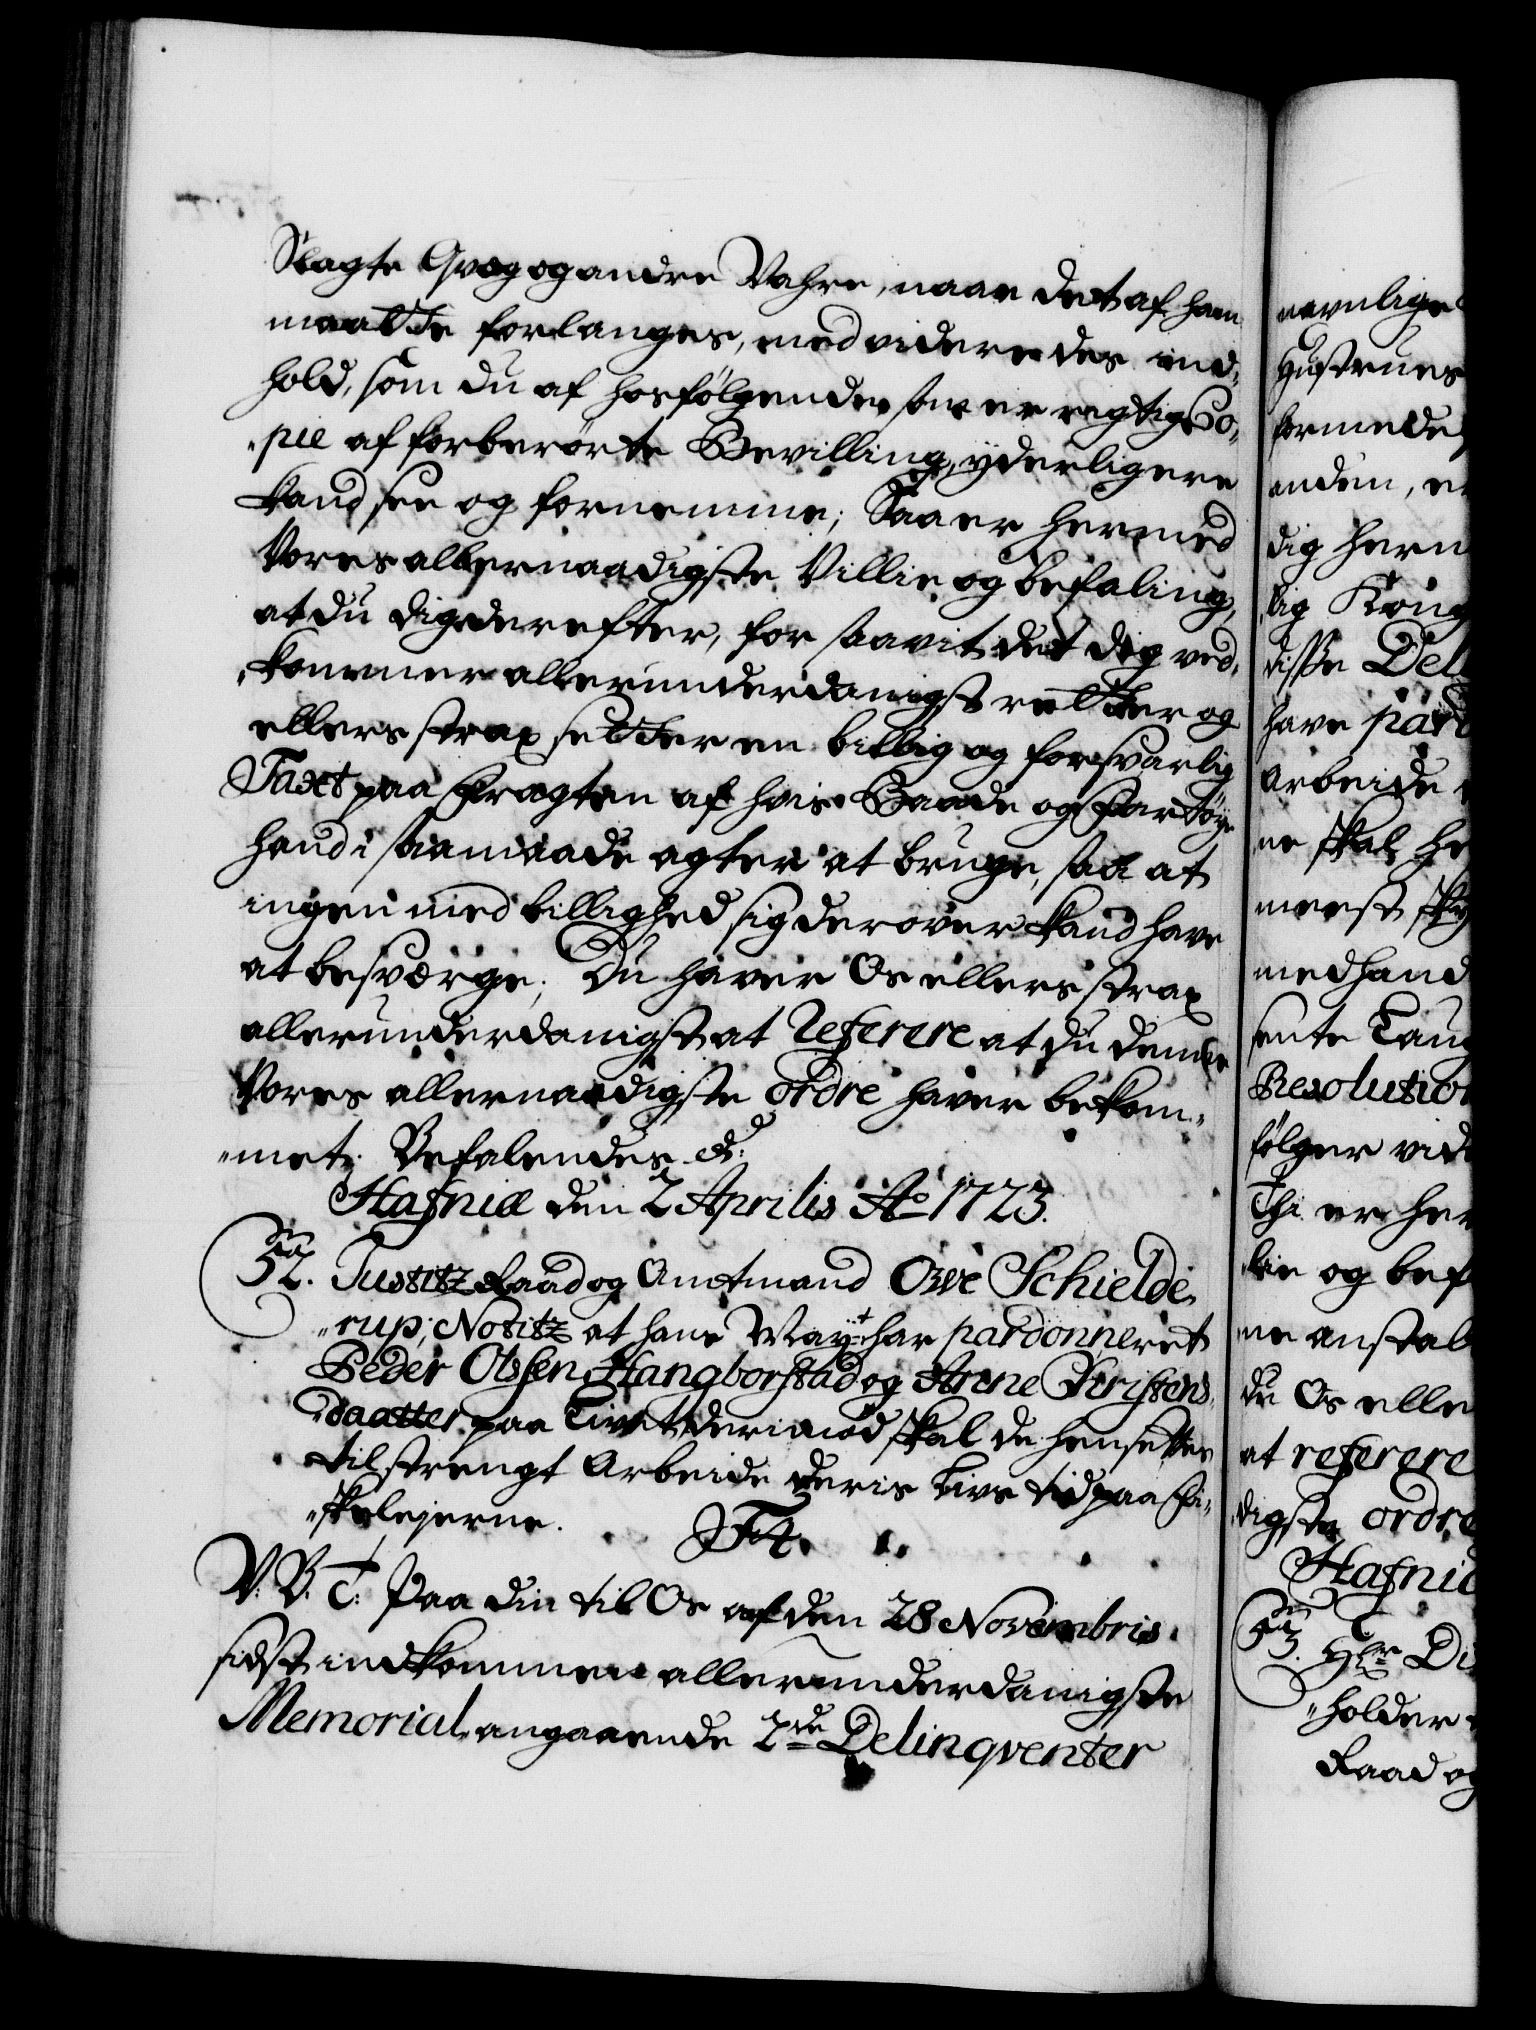 Slagte Qvæg og andre Vahre, naar det af ham
maatte forlanges, med videre des ind„
hold, som du af hosfølgende som er rigtig Co„
„pie af forberørte Bevilling, yderligere
kand see og fornemme; Saa er hermed
Vores allernaadigste Villie og befaling,
at du dig derefter, for saavit det dig ved„
„kommer allerunderdanigst retter og
ellers strax setter en billig og forsvarlig
Taxt paa Fragten af hvis Baade og Fartøye
hand i saa maade agter at bruge, saa at
ingen med billighed sig derover kand have
at besværge; Du haver Os ellers strax
allerunderdanigst at Referere at du denne
Vores allernaadigste ordre haver bekom„
„met. Befalendes &:
Hafniæ den 2 Aprilis Ao 1723.
52. Justitz Raad og Amtmand Owe Schielde„
„rup; Notitz at hans Mayt har pardonneret
Peder Olssen Hangborstad og Anne Christens„
„daatter paa Livet derimod skal de hensettes
til strengt Arbeide deris Livs tid paa Fi„
„skelejerne.
F4.
V. G. T: Paa din til Os af den 28 Novembris
sidst indkommen allerunderdanigste
Memorial angaaende 2de Delinqventer
nevnlige
Hustrues
formede
anden, er
dig herm
lig Kong
disse Del
have pard
arbeide
ne skal he
meest sky
medhand
sente Laug
Resolution
følger vid
Thi er her
lie og bef
ne anstal
du Os elle
at referere
digste ordre
Hafniæ
53. Hr Di
„holder
Raad og